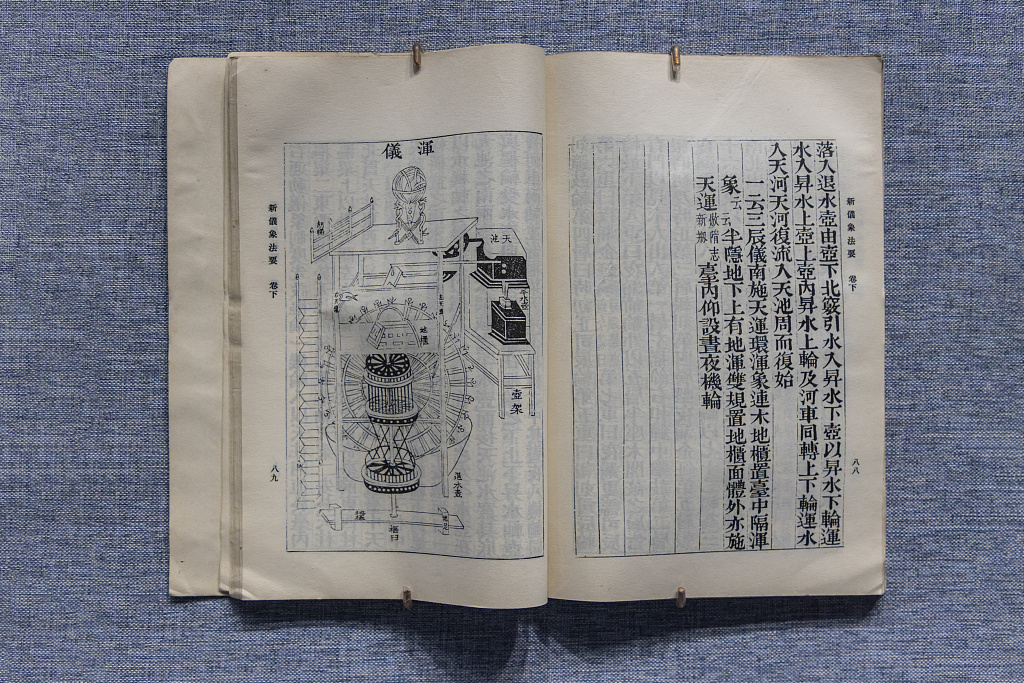 新儀象法要　卷下
八八
落入退水壺由壺下北竅引水入昇水下壺以昇水下輪運
水入昇水上壺上壺內昇水上輪及河車同轉上下輪運水
入天河天河復流入天池周而復始
一云三辰儀南施天運環渾象連木地櫃置臺中隔渾
象云云半隱地下上有地渾雙規置地櫃面體外亦施
天運倣隋志新製臺內仰設晝夜機輪
新儀象法要　卷下
八九
渾儀
天池
平水壺
地櫃
壺架
退水壺
樞臼